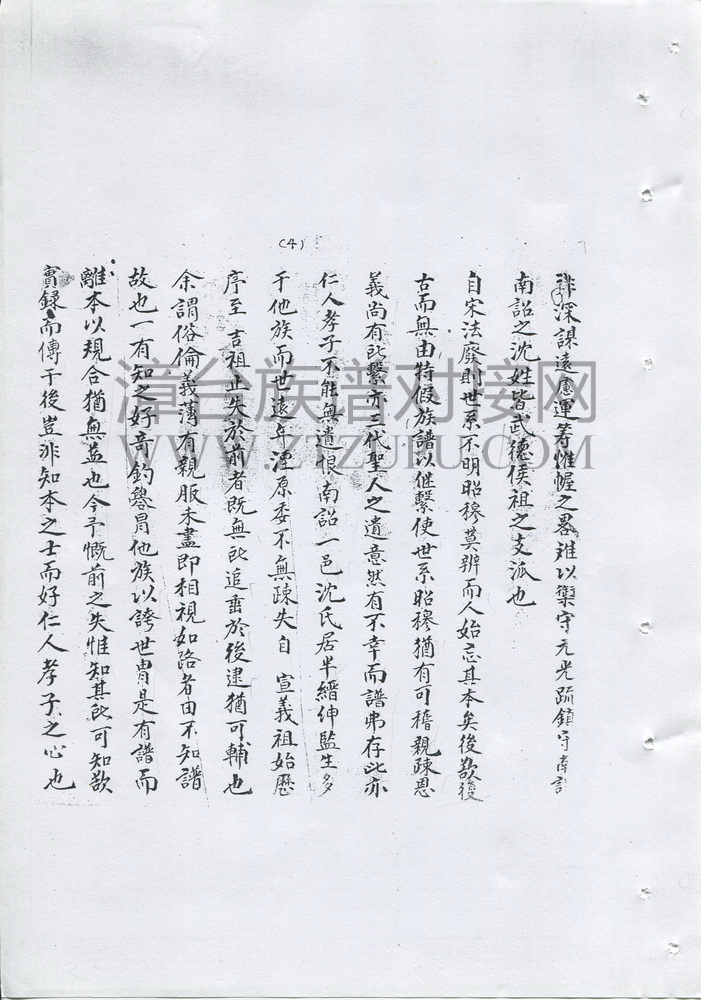 (4)
非深謀遠慮運筹惟幄之畧难以鎮守元光疏鎮守南詔
南詔之沈姓皆武德侯祖之支派也
自宋法廢則世系不明昭穆莫辨而人始忘其本矣後欲復
古而無由特假族譜以继繫使世系昭穆猶有可稽親疎恩
義尚有所繫亦三代聖人之遺意然有不幸而譜弗存此亦
仁人孝子不能無遺恨南詔一邑沈氏居半縉伸監生多
于他族而世遠年湮原委不無疎失自 宣義祖始歷
序至 吉祖止失於前者既無所追垂於後逮猶可輔也
余謂俗倫義薄有親服未盡即相視如路者由不知譜
故也一有知之好奇釣譽冒他族以誇世胄是有譜而
離本以規合猶無益也今予慨前之失惟知其所可知欲
實録而傳于後豈非知本之士而好仁人孝子之心也
漳台族谱对接网
WWW.ZTZUPU.COM